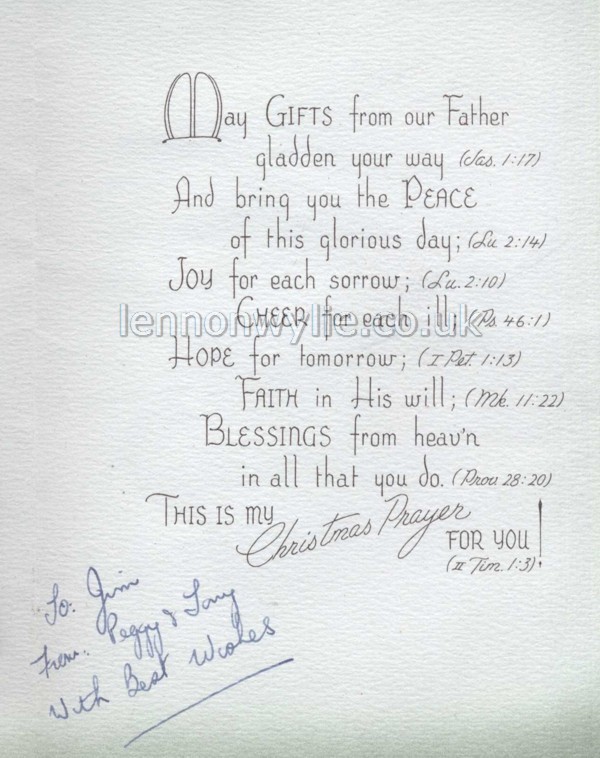 May GIFTS from our Father
gladden your way (Jas. 1:17)
And bring you the PEACE
of this glorious day; (Lu 2:14)
JOY for each sorrow; (Lu. 2:10)
CHEER for each ill; (Ps. 46:1)
lennonwylie.co.uk
HOPE for tomorrow; (I Pet. 1:13)
FAITH in His will; (Mk. 11:22)
BLESSINGS from heav'n
in all that you do. (Prov 28:20)
THIS IS MY Christmas Prayer
FOR YOU!
(II Tim. 1:3)
To: Jim
From: Peggy & Tony
With Best Wishes